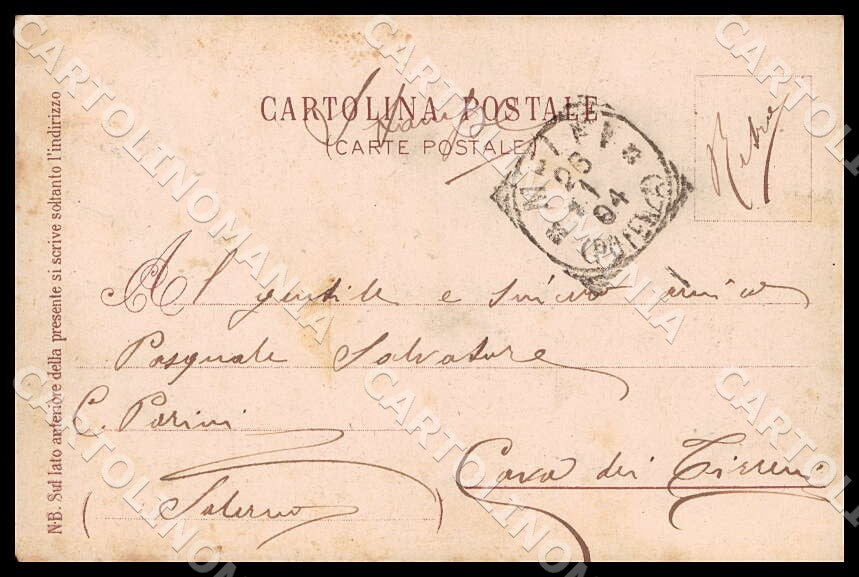 CARTOLINA POSTALE
(CARTE POSTALE)
Stampe
MELFI
26
11
04
(POTENZA)
Retro
Al gentile e sincero amico
Pasquale Salvatore
C. Parisi
Cava dei Tirreni
(Salerno)
N-B. Sul lato anteriore della presente si scrive soltanto l'indirizzo
CARTOLINOMANIA
CARTOLINOMANIA
CARTOLINOMANIA
CARTOLINOMANIA
CARTOLINOMANIA
CARTOLINOMANIA